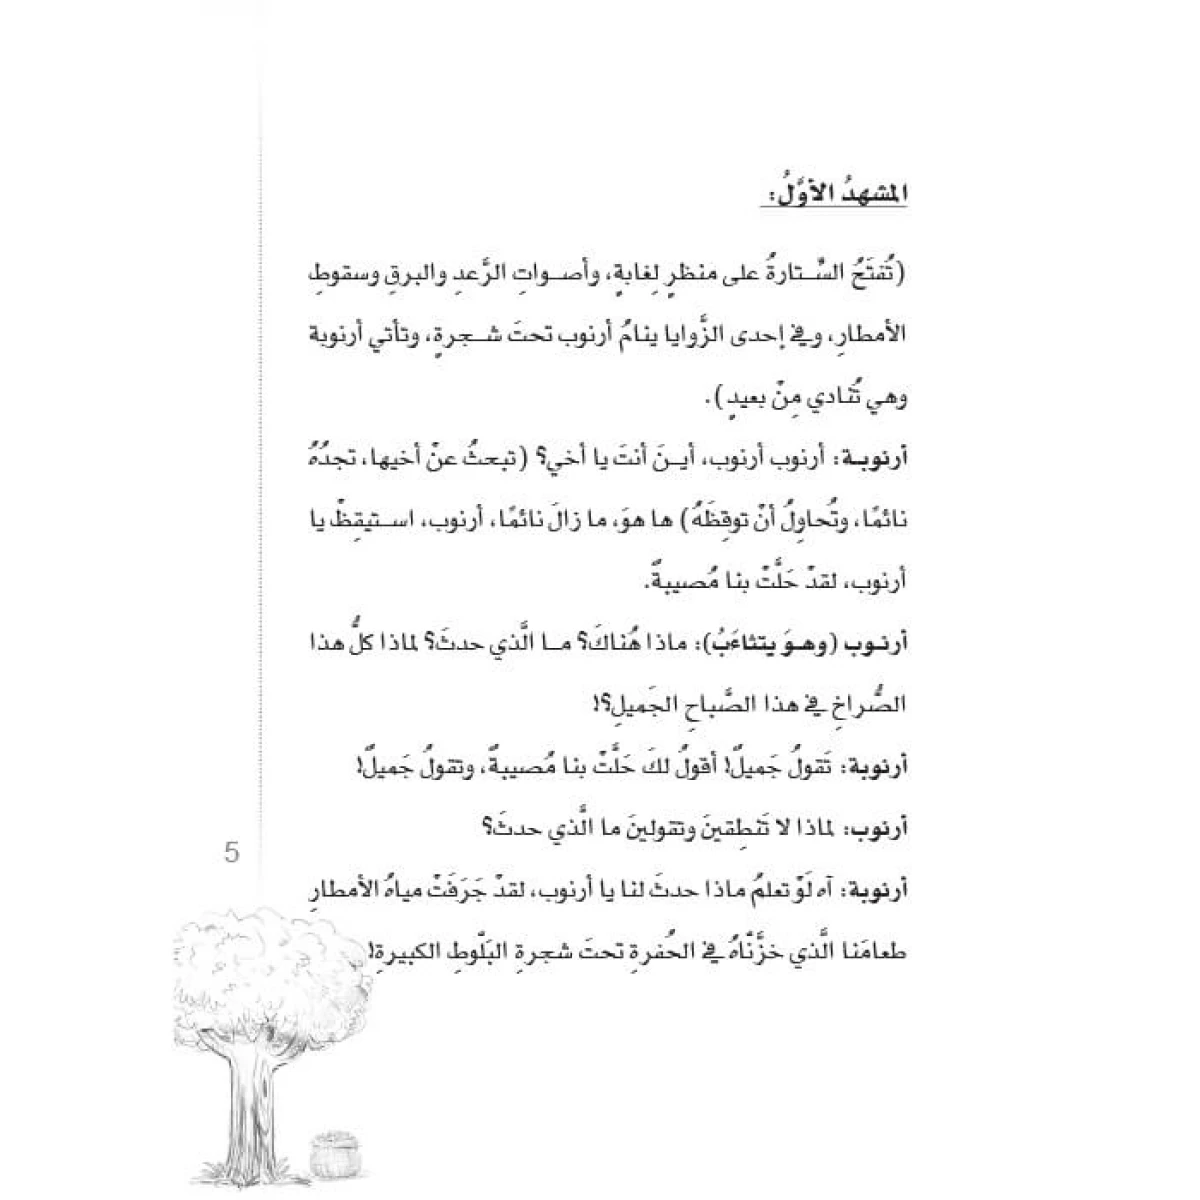 المشهدُ الأوَّلُ:
(تُفتَحُ السِّتارةُ على منظرٍ لِغابةٍ، وأصواتِ الرَّعدِ والبرقِ وسقوطِ
الأمطارِ، وفي إحدى الزَّوايا ينامُ أرنوب تحتَ شجرةٍ، وتأتي أرنوبة
وهي تُنادي مِنْ بعيدٍ).
أرنوبة: أرنوب أرنوب، أينَ أنتَ يا أخي؟ (تبحثُ عنْ أخيها، تجدُهُ
نائمًا، وتُحاوِلُ أنْ توقِظَهُ) ها هوَ، ما زالَ نائمًا، أرنوب، استيقِظْ يا
أرنوب، لقدْ حَلَّتْ بنا مُصيبةٌ.
أرنوب (وهوَ يتثاءَبُ): ماذا هُناكَ؟ ما الَّذي حدثَ؟ لماذا كلُّ هذا
الصُّراخِ في هذا الصَّباحِ الجَميلِ؟!
أرنوبة: تَقولُ جَميلٌ! أقولُ لكَ حَلَّتْ بنا مُصيبةٌ، وتقولُ جَميلٌ!
أرنوب: لماذا لا تَنطِقينَ وتقولينَ ما الَّذي حدثَ؟
5
أرنوبة: آه لَوْ تعلمُ ماذا حدثَ لنا يا أرنوب، لقدْ جَرَفَتْ مياهُ الأمطارِ
طعامَنا الَّذي خزَّنّاهُ في الحُفرةِ تحتَ شجرةِ البَلّوطِ الكبيرةِ!